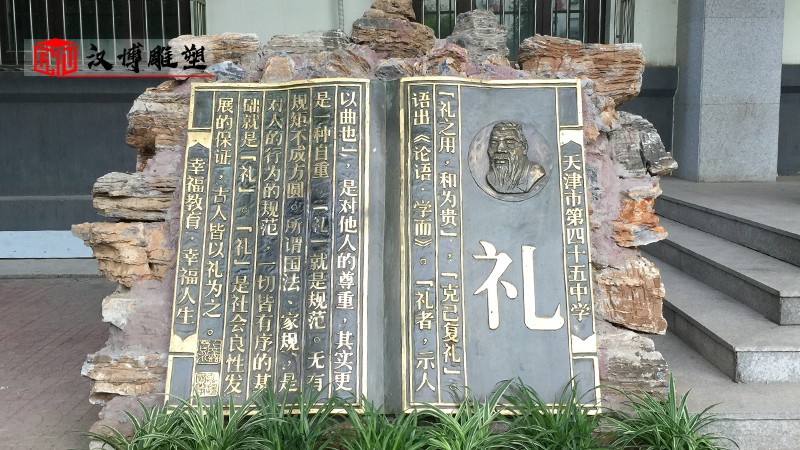 汉博雕塑
天津市第四十五中学
礼
「礼之用，和为贵」，「克己复礼」。
语出《论语·学而》。「礼者，示人
以曲也」，是对他人的尊重，其实更
是一种自重。「礼」就是规范。无有
规矩不成方圆。所谓国法、家规，是
对人的行为的规范，一切皆有序的基
础就是「礼」。「礼」是社会良性发
展的保证，古人皆以礼为之。
幸福教育·幸福人生